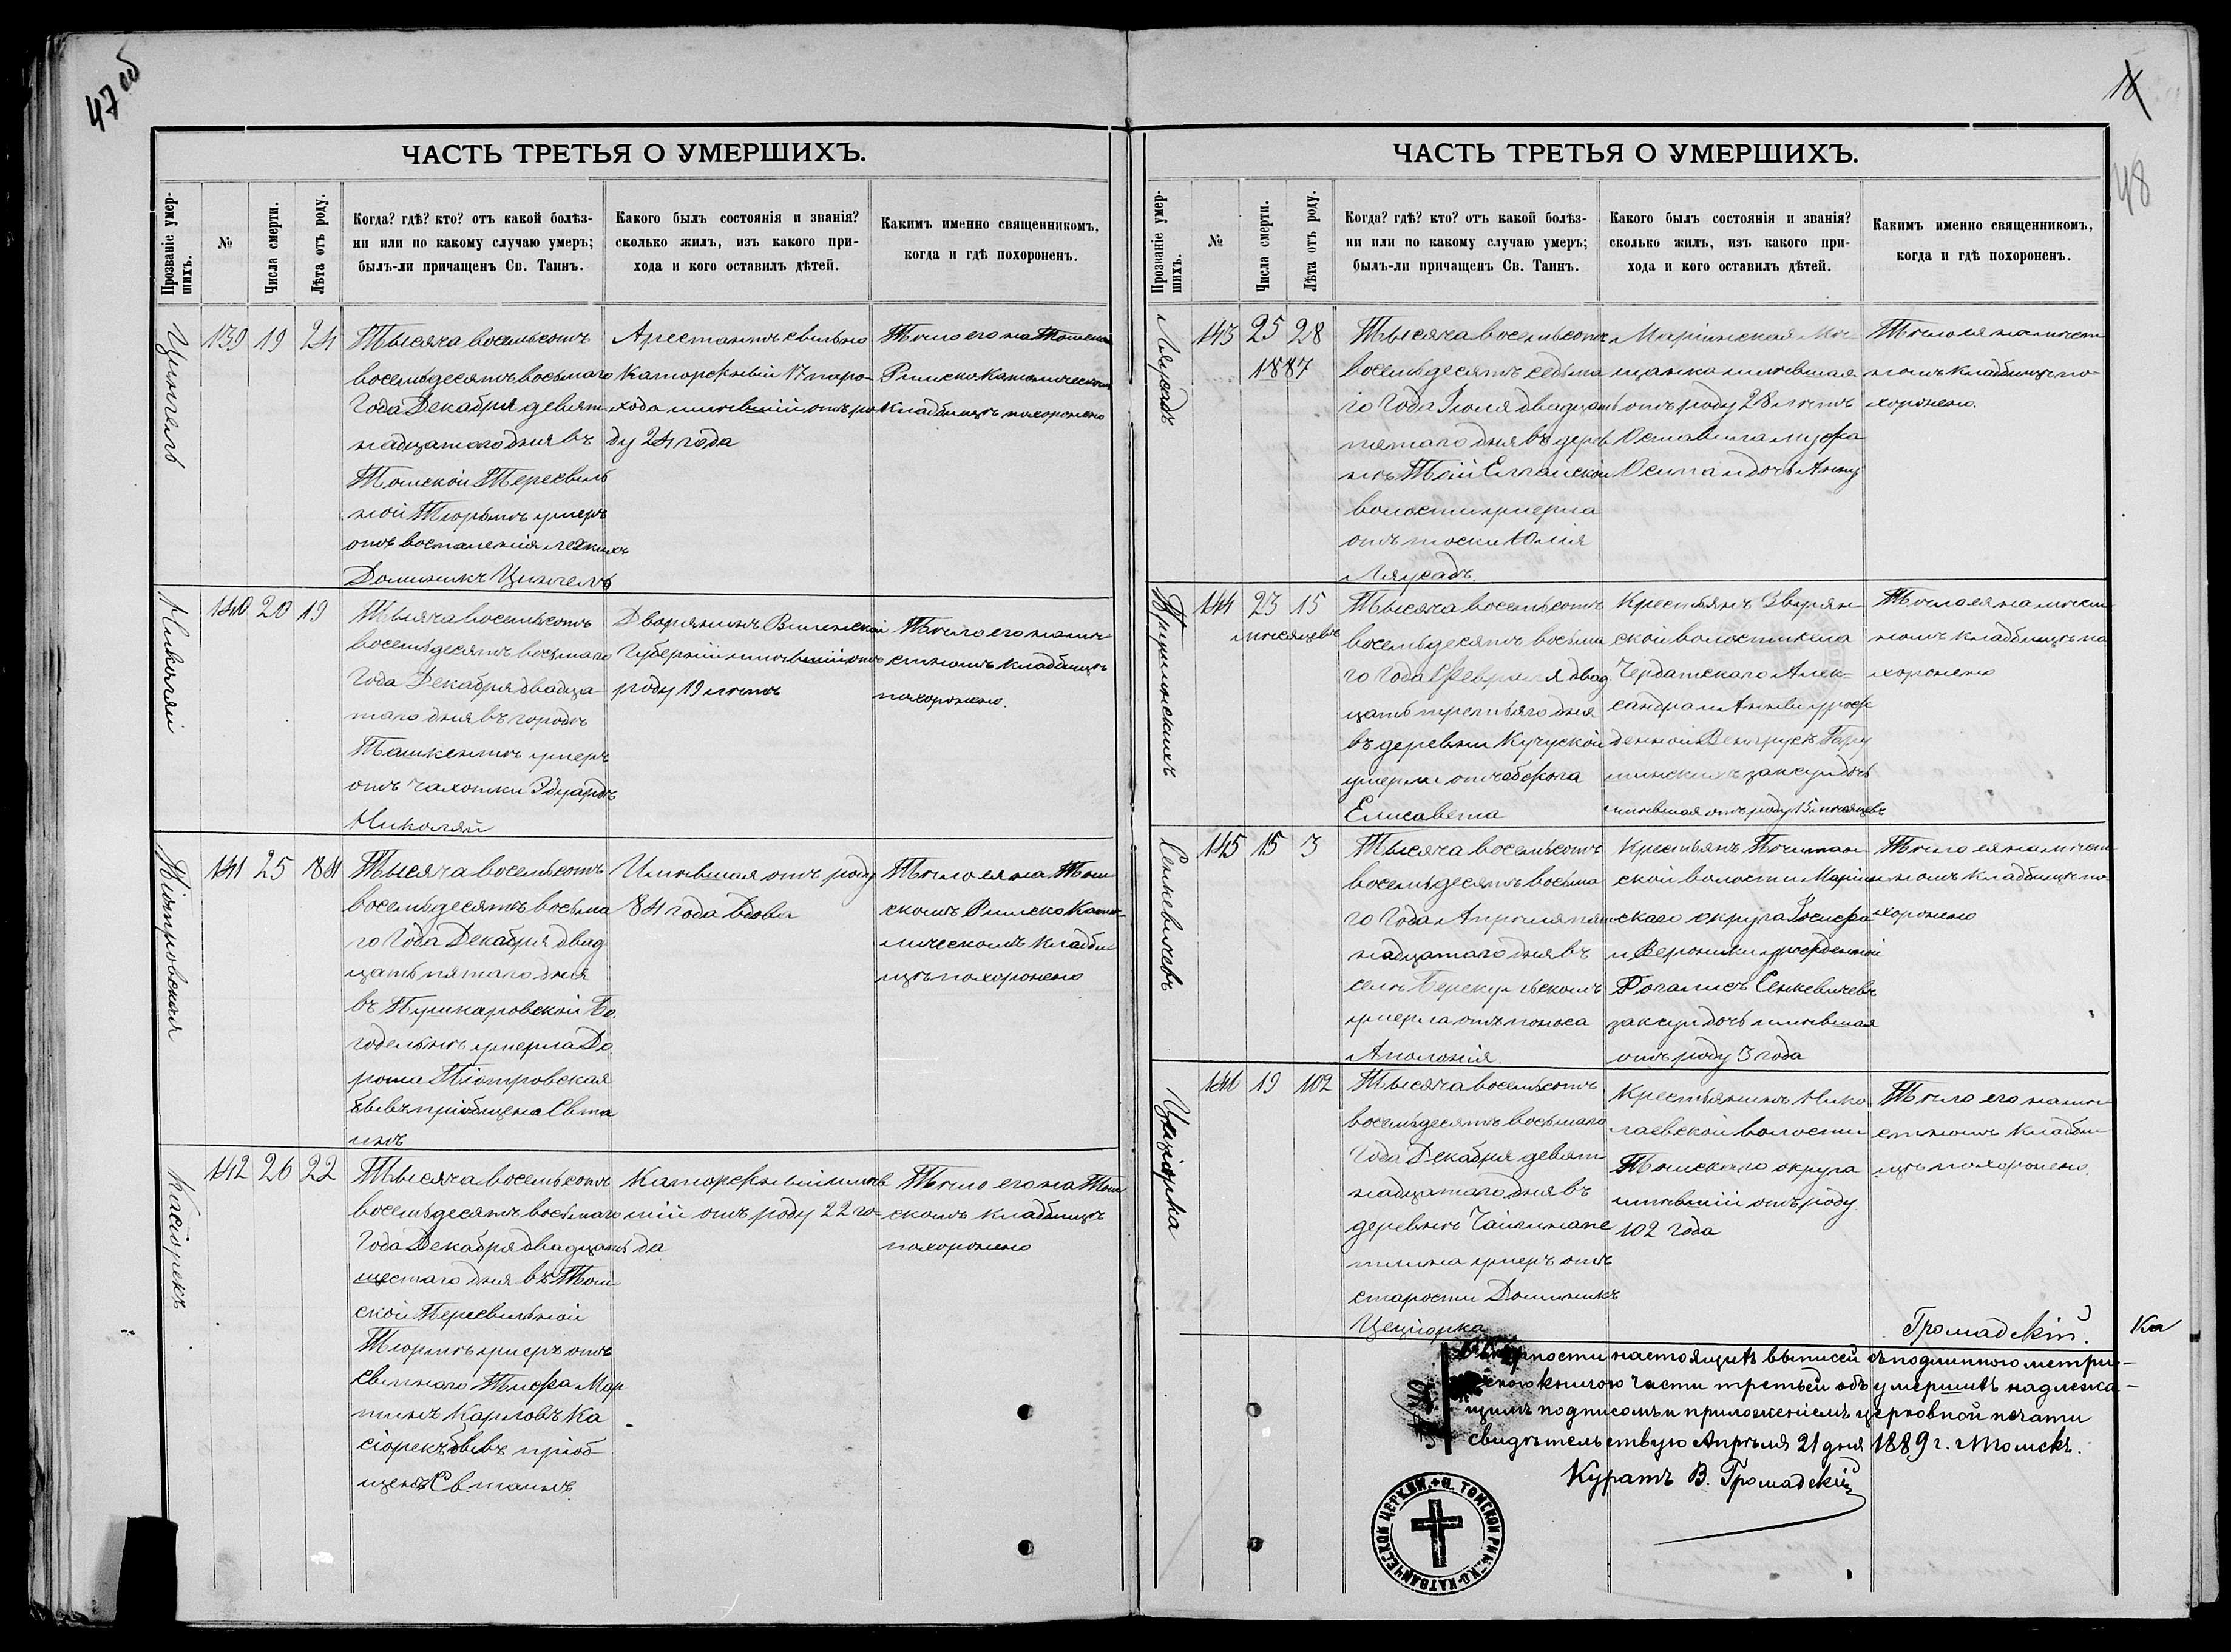 47 об
ЧАСТЬ ТРЕТЬЯ О УМЕРШИХЪ.
Прозваніе умер-
шихъ.
№
Числа смерти.
Лѣта отъ роду.
Когда? гдѣ? кто? отъ какой болѣз-
ни или по какому случаю умеръ;
былъ-ли причащенъ Св. Таинъ.
Какого былъ состоянія и званія?
сколько жилъ, изъ какого при-
хода и кого оставилъ дѣтей.
Какимъ именно священникомъ,
когда и гдѣ похороненъ.
Цингель
139 19 24
Тысяча восемьсотъ
восемьдесятъ восьмаго
Года Декабря девят
надцатаго дня въ
Томской Пересыль
ной Тюрьмѣ умеръ
отъ воспаленія легкихъ
Доминикъ Цингель
Арестантъ ссыльно
каторжный
хода имѣвшій отъ ро
ду 24 года
Тѣло его на Томском
Римско Католическомъ
кладбищѣ похоронено
Николяй
140 20 19
Тысяча восемьсотъ
восемьдесятъ восьмаго
Года Декабря двадца-
таго дня въ городѣ
Ташкентѣ умеръ
отъ чахотки Эдуардъ
Николяй
Дворянинъ Виленской
Губерніи имѣвшій отъ
роду 19 лѣтъ
Тѣло его на мѣ
стномъ кладбищѣ
похоронено.
Піотровская
141 25 84
Тысяча восемьсотъ
восемьдесятъ восьма
го Года Декабря двад
цать пятаго дня
въ Пушкаровской Бо
годельнѣ умерла До
рота Піотровская
бывъ пріобщена Св та
инъ
Имѣвшая отъ роду
84 года вдова
Тѣло ея на Том
скомъ Римско Като-
лическомъ кладби
щѣ похоронено
Касіорекъ
142 26 22
Тысяча восемьсотъ
восемьдесятъ восьмаго
Года Декабря двадцать
шестаго дня въ Том
ской Пересыльной
Тюрьмѣ умеръ отъ
сыпнаго Тифа Мар
тинъ Карловъ Ка
сіорекъ бывъ пріоб
щенъ Св. таинъ
Каторжный имѣв
шій отъ роду 22 го-
да
Тѣло его на Том
скомъ кладбищѣ
похоронено
16
48
ЧАСТЬ ТРЕТЬЯ О УМЕРШИХЪ.
Прозваніе умер-
шихъ.
№
Числа смерти.
Лѣта отъ роду.
Когда? гдѣ? кто? отъ какой болѣз-
ни или по какому случаю умеръ;
былъ-ли причащенъ Св. Таинъ.
Какого былъ состоянія и званія?
сколько жилъ, изъ какого при-
хода и кого оставилъ дѣтей.
Какимъ именно священникомъ,
когда и гдѣ похороненъ.
143 25 28
1887
Тысяча восемьсотъ
восемьдесятъ седьма
го Года Іюля двадцать
пятаго дня въ дерев
нѣ Елгайской
волости умерла
отъ тоски Юлія
Маріинская Мѣ-
щанка имѣвшая
отъ роду 28 лѣтъ
Оставила мужа
Осипа и дочь Анну
Тѣло ея на мѣст
номъ кладбищѣ по-
хоронено.
144 23 15
мѣсяцевъ
Тысяча восемьсотъ
восемьдесятъ восьма
го Года Февраля двад
цать третьяго дня
въ деревни Кучуской
умерла отъ
Елисавета
Крестьянъ Зырян-
ской волости села
Чердатскаго Алек-
сандра и Анны урож
денной
законная дочь
имѣвшая отъ роду 15 мѣсяцевъ
Тѣло ея на мѣст
номъ кладбищѣ по
хоронено
Сенкевичевъ
145 15 3
Тысяча восемьсотъ
восемьдесятъ восьма
го Года Апрѣля пят
надцатаго дня въ
селѣ Берикульскомъ
умерла отъ поноса
Аполонія.
Крестьянъ Почитан
ской волости Маріин
скаго округа Іосифа
и Вероники урожденной
Сенкевичевъ
закон дочь имѣвшая
отъ роду 3 года
Тѣло ея на мѣст
номъ кладбищѣ по-
хоронено
19 102
Тысяча восемьсотъ
восемьдесятъ восьмаго
Года Декабря девят
надцатаго дня въ
деревнѣ
умеръ отъ
старости Доминикъ
Цеціорка
Крестьянинъ Нико
лаевской волости
Томскаго округа
имѣвшій отъ роду
102 года
Тѣло его на мѣ
стномъ кладби
щѣ похоронено.
Громадскій.
настоящихъ выписей съ подлинного метри-
ческою книгою части третьей объ умершихъ надлежа-
щимъ подписомъ и приложеніемъ церковной печати
свидѣтельствую Апрѣля 21 дня 1889 г. г. Томскъ.
Куратъ В. Громадскій
ТОМСКОЙ РИМ.-КАТОЛИЧЕСКОЙ ЦЕРКВИ